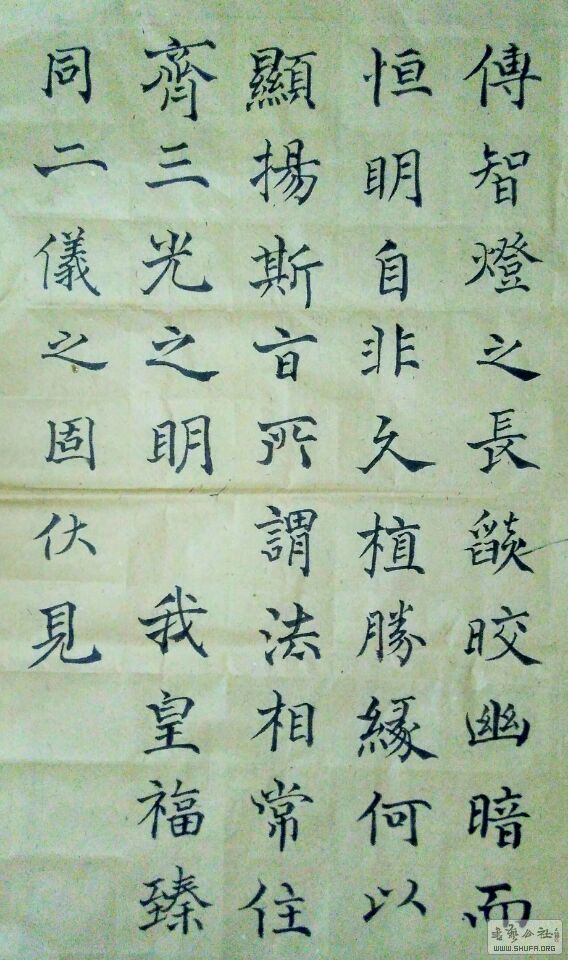 傳智燈之長燄晈幽暗而
恒明自非久植勝緣何以
顯揚斯旨所謂法相常住
齊三光之明 我皇福臻
同二儀之固伏見
WWW.SHUFA.ORG